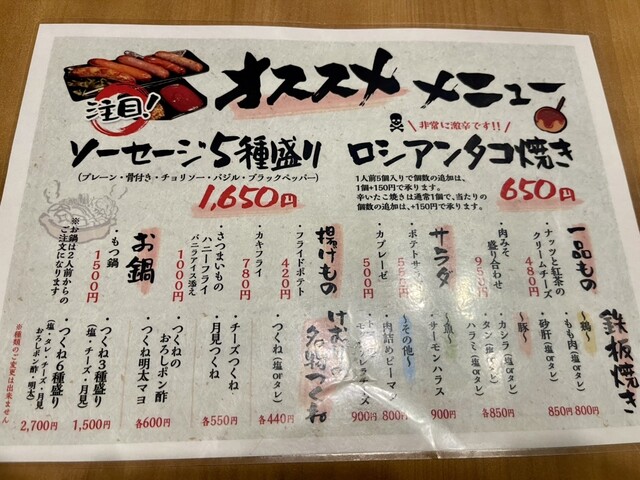 オススメ メニュー
注目！
ソーセージ5種盛り
(プレーン・骨付き・チョリソー・バジル・ブラックペッパー)
1,650円
非常に激辛です!!
ロシアンタコ焼き
1人前5個入りで個数の追加は、
1個+150円で承ります。
辛いたこ焼きは通常1個で、当たりの
個数の追加は、+150円で承ります。
650円
一品もの
・ナッツと紅茶の
クリームチーズ
480円
・肉みそ
盛り合わせ
950円
サラダ
・ポテトサ
550円
・カプレーゼ
500円
揚げもの
・フライドポテト
420円
・カキフライ
780円
・さつまいもの
ハニーフライ
バニラアイス添え
1000円
お鍋
・もつ鍋
1500円
※お鍋は2人前からの
ご注文になります
鉄板焼き
～鶏～
・もも肉(塩orタレ)
800円
・砂肝(塩orタレ)
850円
～豚～
・カシラ(塩orタレ)
・タン(塩orタレ)
・ハラミ
各850円
～魚～
・サーモンハラス
900円
～その他～
・肉詰めピーマン
800円
900円
けむりの
名物つくね
・つくね(塩orタレ)
各440円
・チーズつくね
・月見つくね
各550円
・つくねの
おろしポン酢
・つくね明太マヨ
各600円
・つくね3種盛り
(塩・チーズ・月見)
1,500円
・つくね6種盛り
(塩・タレ・チーズ・月見
おろしポン酢・明太)
2,700円
※種類のご変更は出来ません